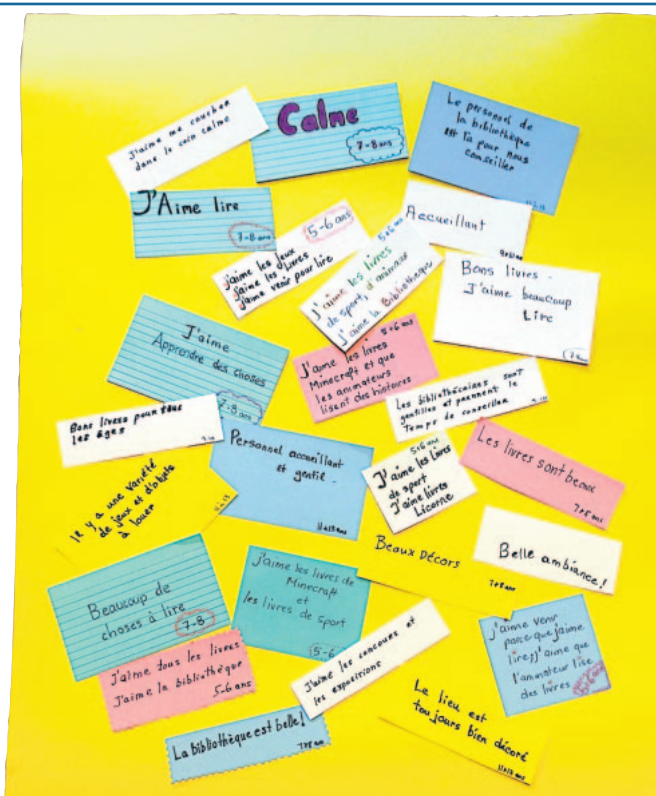 J'aime me coucher
dans le coin calme
Calme
7-8 ans
Le personnel de
la bibliothèque
est là pour nous
conseiller
J'Aime lire
7-8 ans
5-6 ans
j'aime les jeux
j'aime les livres
j'aime venir pour lire
5+6 ans
J'aime les livres
de sport, d'animaux
J'aime la Bibliothèque
Accueillant
Bons livres -
J'aime beaucoup
Lire
J'aime
Apprendre des choses
7-8 ans
5+6 ans
J'aime les livres
Minecraft et que
les animateurs
lisent des histoires
Les bibliothécaires sont
gentilles et prennent le
Temps de conseiller
Bons livres pour tous
les âges
Personnel accueillant
et gentil -
11+13 ans
5+6 ans
J'aime les livres
de sport
J'aime livres
Licorne
Les livres sont beaux
7+8 ans
Il y a une variété
de jeux et d'objets
à louer
Beaux Décors
7+8 ans
Belle ambiance!
Beaucoup de
choses à lire
7-8
j'aime les livres de
Minecraft
et
les livres de sport
5-6
j'aime venir
parce que j'aime
lire; j'aime que
l'animateur lise
des livres
J'aime tous les livres
J'aime la bibliothèque
5-6 ans
J'aime les concours et
les expositions
La bibliothèque est belle!
7+8 ans
Le lieu est
toujours bien décoré
11+13 ans